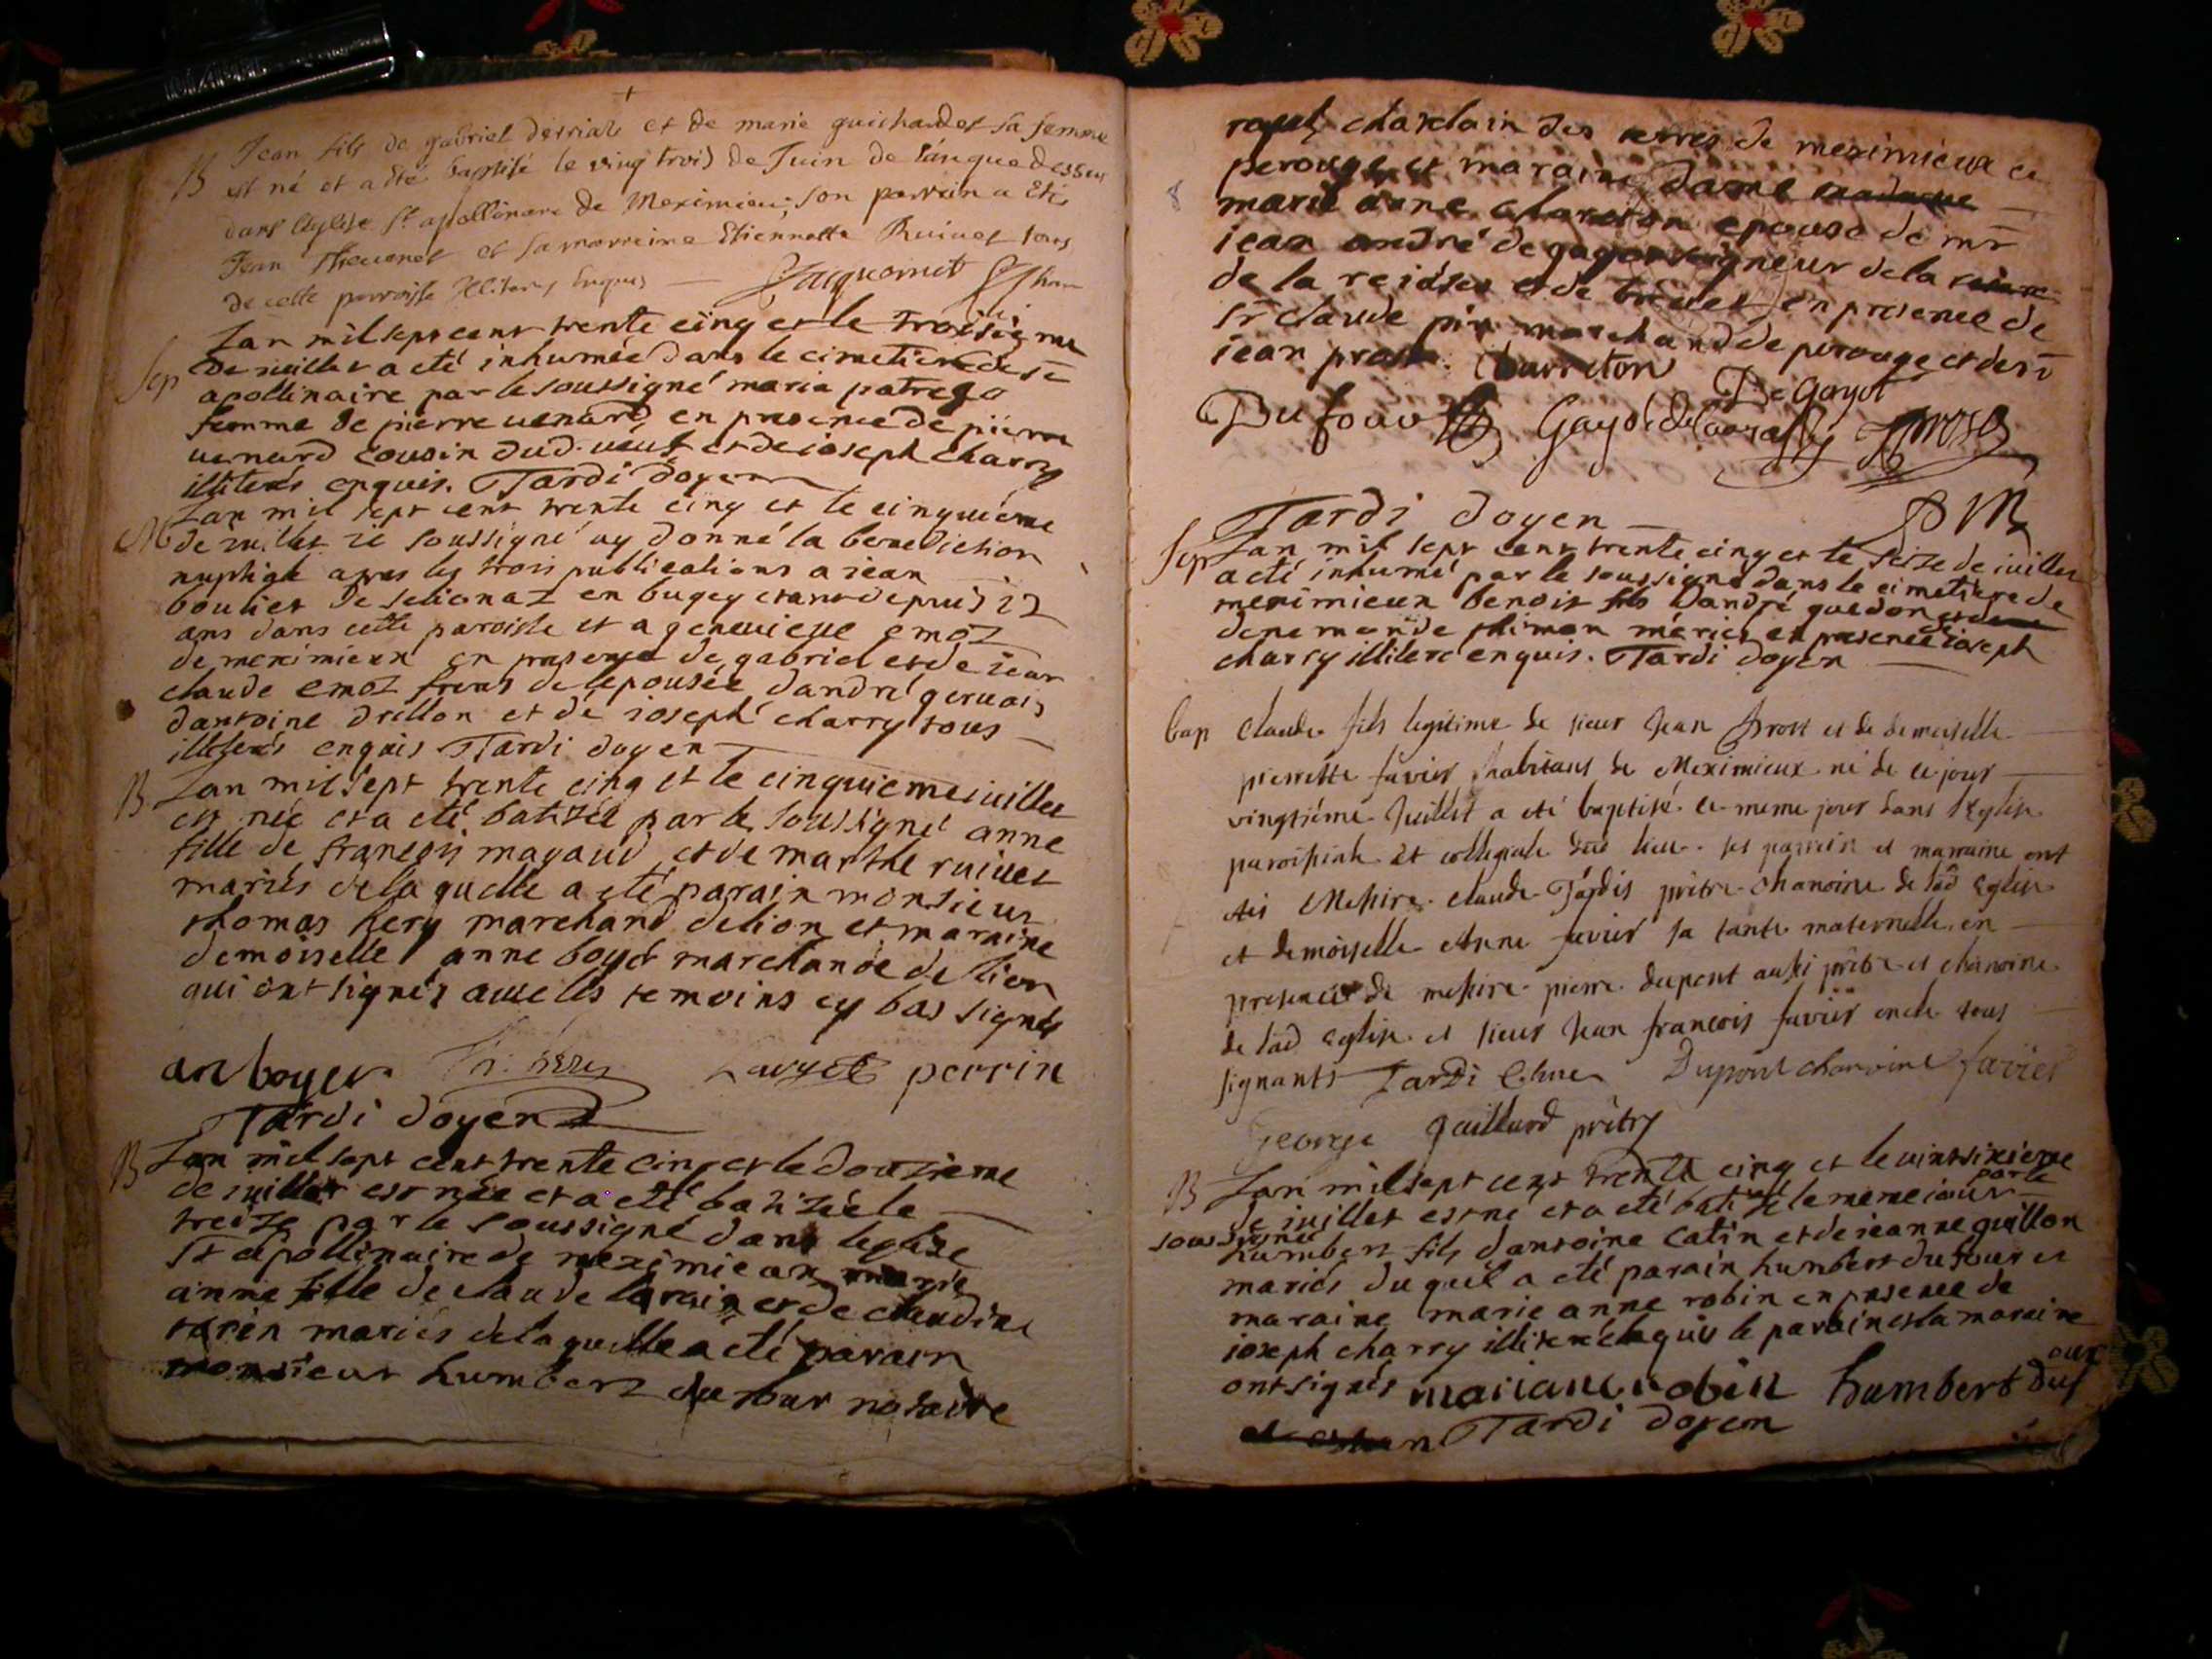 B Jean fils de gabriel derriaz et de marie guichardet sa femme
est né et a été baptisé le ving trois de Juin de l'an que dessus
dans l'eglise St apollinare de Meximieu; son parrain a été
Jean et sa marreine Etiennette Ruivet tous
de cette parroisse illiterés enquis Jacquemet
Lan mil sept cent trente cinq et le troisieme
Sep de iuillet a eté inhumée dans le cimetiere de st
apollinaire par le soussigné maria
femme de pierre uenard en presence de pierre
uenard cousin dud. ueuf et de ioseph charry
illiterés enquis. Tardi doyen
Lan mil sept cent trente cinq et le cinquiéme
M de iuillet ie soussigné ay donné la benediction
nuptiale apres les trois publications a iean
boulier de selignaz en bugey etant depuis 22
ans dans cette paroisse et a geneuieue emoz
de meximieux en presence de gabriel et de iean
claude emoz freres de lepousée dandré geruais
dantoine drillon et de ioseph charry tous
illiterés enquis Tardi doyen
B Lan mil sept trente cinq et le cinquieme iuillet
est née et a eté batizée par le soussigné anne
fille de françois magaud et de marthe ruiuet
mariés de laquelle a eté parain monsieur
thomas hery marchand de lion et maraine
demoiselle anne boyer marchande de lion
qui ont signés auec les temoins cy bas signés
an boyer Th: hery perrin
Tardi doyen
B Lan mil sept cent trente cinq et le douzieme
de iuillet est née et a eté batizée le
treize par le soussigné dans leglise
St apollinaire de meximieux marie
anne fille de claude lorain et de claudine
marin mariés de laquelle a eté parain
monsieur humbert dufour notaire
royal chatelain des terres de meximieux et
perouge et maraine dame
marie anne charreton epouse de mr
iean andré de gayot seigneur de la
de la reidse et de en presence de
sr claude pin marchand de perouge et de sr
iean prost. Charreton De Gayot
Dufour Gayot de Prost
Tardi doyen PM
Sep Lan mil sept cent trente cinq et le seize de iuillet
a eté inhumé par le soussigné dans le cimetiere de
meximieux benoit fils dandré guedon et de
mariés en presence de ioseph
charry illiteré enquis. Tardi doyen
bap Claude fils legitime de sieur Jean Prost et de demoiselle
pierrette favier habitans de Meximieux né de ce jour
vingtiéme Juillet a eté baptisé le meme jour dans l'Eglise
paroissiale et collegiale dud lieu. ses parrein et marraine ont
étés Messire claude Tardis prêtre chanoine de lad Eglise
et demoiselle Anne favier sa tante maternelle, en
presence de messire pierre dupont aussi prêtre et chanoine
de lad Eglise et sieur Jean françois favier oncle tous
signants Tardi Dupont chanoine favier
George Gaillard prêtre
B Lan mil sept cent trente cinq et le vintsixieme
de iuillet est né et a eté batizé le meme iour par le
soussigné humbert fils dantoine Catin et de ieanne guillon
mariés du quel a eté parain humbert dufour et
maraine marie anne robin en presence de
ioseph charry illiteré enquis le parain et la maraine
ont signés mariane robin humbert dufour
Tardi doyen